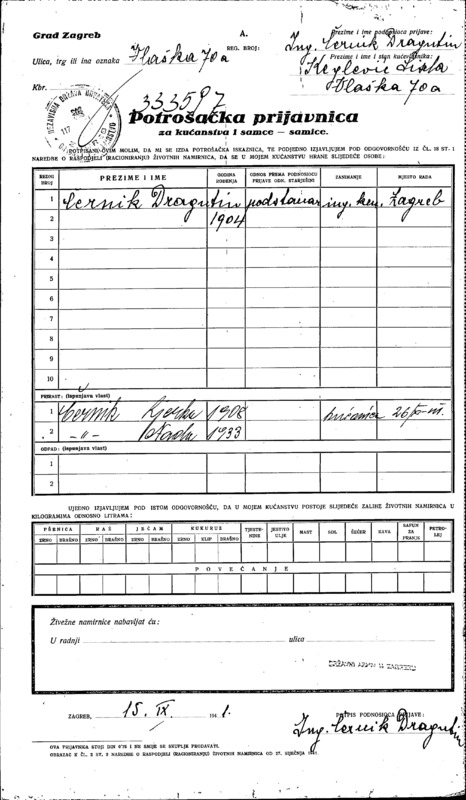 Grad Zagreb
A.
Prezime i ime podnosioca prijave:
Ing. Černik Dragutin
Ulica, trg ili ina oznaka Vlaška 70a
REG. BROJ:
Prezime i ime i stan kućevlasnika:
Keglević
Vlaška 70a
Kbr.
NEZAVISNA DRŽAVA HRVATSKA
333597
Potrošačka prijavnica
za kućanstva i samce — samice.
POTPISANI OVIM MOLIM, DA MI SE IZDA POTROŠAČKA ISKAZNICA, TE PODJEDNO IZJAVLJUJEM POD ODGOVORNOŠĆU IZ ČL. 18 ST. 1
NAREDBE O RASPODJELI (RACIONIRANJU) ŽIVOTNIH NAMIRNICA, DA SE U MOJEM KUĆANSTVU HRANE SLIJEDEĆE OSOBE:
REDNI BROJ PREZIME I IME GODINA ROĐENJA ODNOS PREMA PODNOSIOCU PRIJAVE ODN. STARJEŠINI ZANIMANJE MJESTO RADA
1 Černik Dragutin podstanar ing. kem. Zagreb
2 1904
3
4
5
6
7
8
9
10
PRIRAST: (ispunjava vlast)
1 Černik 1908 kućanica
2 -"- Nada 1933
OTPAD: (ispunjava vlast)
1
2
UJEDNO IZJAVLJUJEM POD ISTOM ODGOVORNOŠĆU, DA U MOJEM KUĆANSTVU POSTOJE SLIJEDEĆE ZALIHE ŽIVOTNIH NAMIRNICA U
KILOGRAMIMA ODNOSNO LITRAMA:
PŠENICA RAŽ JEČAM KUKURUZ TJESTENINE JESTIVO ULJE MAST SOL ŠEĆER KAVA SAPUN ZA PRANJE PETROLEJ
ZRNO BRAŠNO ZRNO BRAŠNO ZRNO BRAŠNO ZRNO KLIP BRAŠNO
POVEĆANJE
Živežne namirnice nabavljat ću:
U radnji ulica
DRŽAVNI ARHIV U ZAGREBU
ZAGREB, 15. IX. 1941.
POTPIS PODNOSIOCA PRIJAVE:
Ing. Černik Dragutin
OVA PRIJAVNICA STOJI DIN 0'75 I NE SMIJE SE SKUPLJE PRODAVATI.
OBRAZAC K ČL. 2 ST. 3 NAREDBE O RASPODJELI (RACIONIRANJU) ŽIVOTNIH NAMIRNICA OD 27. SIJEČNJA 1941.